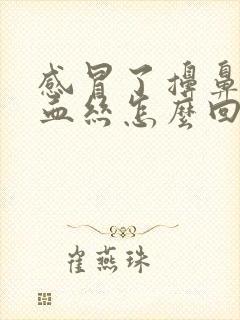 感冒了擤鼻
血絲怎麼回
崔燕珠